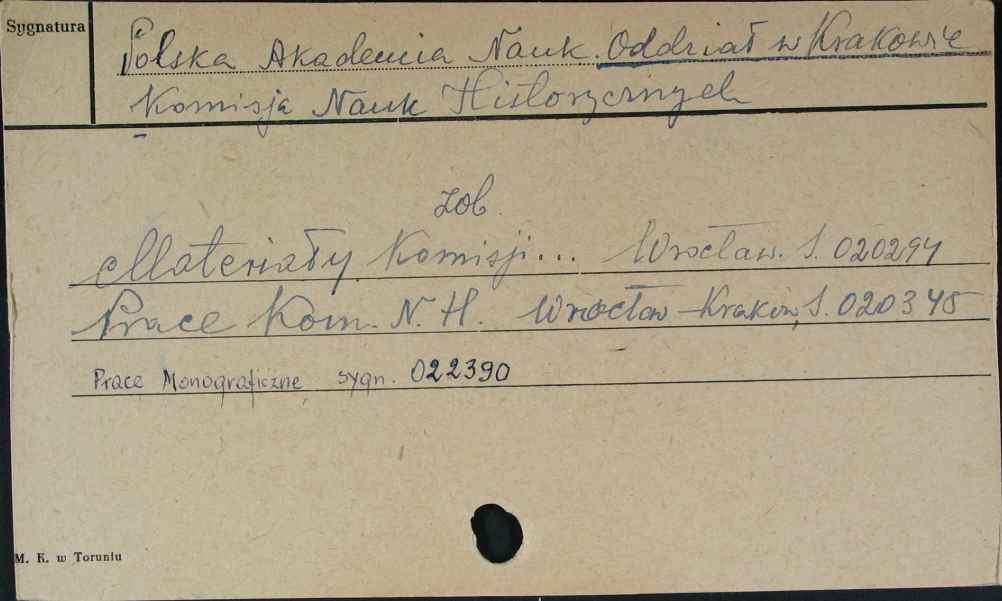 Sygnatura
Polska Akademia Nauk. Oddział w Krakowie
Komisja Nauk Historycznych
zob.
Materiały Komisji... Wrocław. S. 020294
Prace Kom. N. H. Wrocław-Kraków, S. 020345
Prace Monograficzne sygn. 022390
M. K. w Toruniu